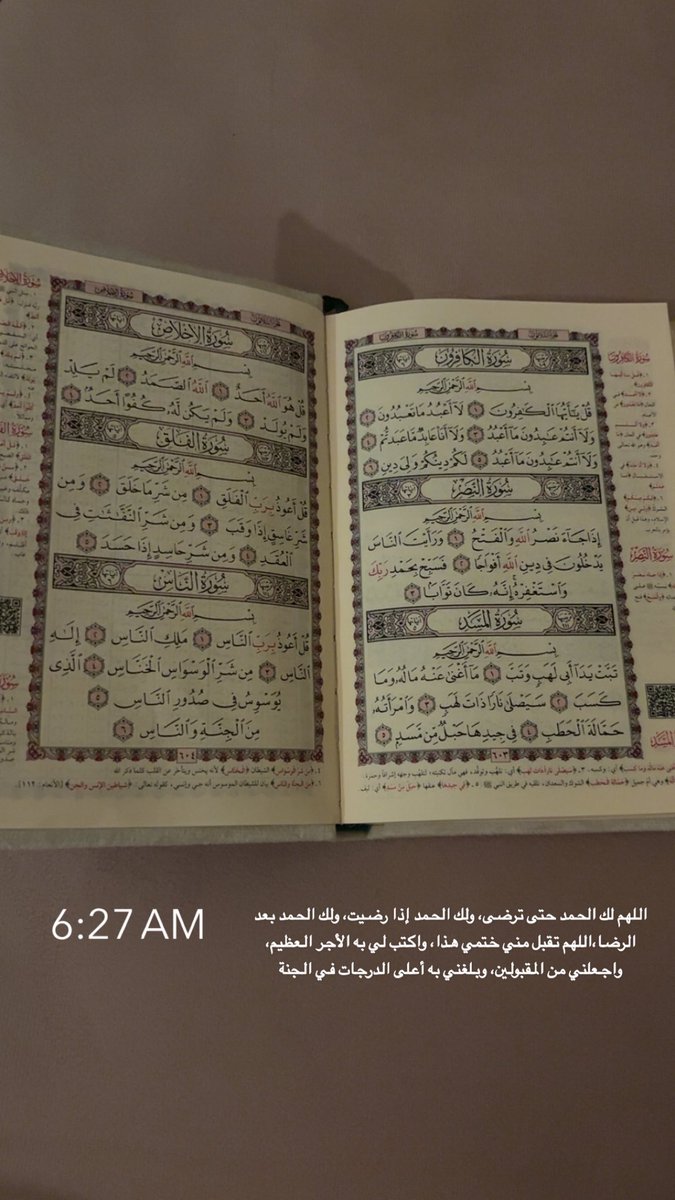 سورة الكافرون
سُورَةُ الكَافِرُونَ
بِسْمِ اللَّهِ الرَّحْمَٰنِ الرَّحِيمِ
قُلْ يَٰٓأَيُّهَا ٱلْكَٰفِرُونَ ١ لَآ أَعْبُدُ مَا تَعْبُدُونَ ٢
وَلَآ أَنتُمْ عَٰبِدُونَ مَآ أَعْبُدُ ٣ وَلَآ أَنَا۠ عَابِدٌ مَّا عَبَدتُّمْ ٤
وَلَآ أَنتُمْ عَٰبِدُونَ مَآ أَعْبُدُ ٥ لَكُمْ دِينُكُمْ وَلِىَ دِينِ ٦
سُورَةُ النَّصْرِ
بِسْمِ اللَّهِ الرَّحْمَٰنِ الرَّحِيمِ
إِذَا جَآءَ نَصْرُ ٱللَّهِ وَٱلْفَتْحُ ١ وَرَأَيْتَ ٱلنَّاسَ
يَدْخُلُونَ فِى دِينِ ٱللَّهِ أَفْوَاجًا ٢ فَسَبِّحْ بِحَمْدِ رَبِّكَ
وَٱسْتَغْفِرْهُ إِنَّهُۥ كَانَ تَوَّابًۢا ٣
سُورَةُ المَسَدِ
بِسْمِ اللَّهِ الرَّحْمَٰنِ الرَّحِيمِ
تَبَّتْ يَدَآ أَبِى لَهَبٍ وَتَبَّ ١ مَآ أَغْنَىٰ عَنْهُ مَالُهُۥ وَمَا
كَسَبَ ٢ سَيَصْلَىٰ نَارًا ذَاتَ لَهَبٍ ٣ وَٱمْرَأَتُهُۥ
حَمَّالَةَ ٱلْحَطَبِ ٤ فِى جِيدِهَا حَبْلٌ مِّن مَّسَدٍۭ ٥
٦٠٣
سُورَةُ الكَافِرُونَ
سُورَةُ النَّصْرِ
سورة الإخلاص
سُورَةُ الإِخْلَاصِ
بِسْمِ اللَّهِ الرَّحْمَٰنِ الرَّحِيمِ
قُلْ هُوَ ٱللَّهُ أَحَدٌ ١ ٱللَّهُ ٱلصَّمَدُ ٢ لَمْ يَلِدْ
وَلَمْ يُولَدْ ٣ وَلَمْ يَكُن لَّهُۥ كُفُوًا أَحَدٌۢ ٤
سُورَةُ الفَلَقِ
بِسْمِ اللَّهِ الرَّحْمَٰنِ الرَّحِيمِ
قُلْ أَعُوذُ بِرَبِّ ٱلْفَلَقِ ١ مِن شَرِّ مَا خَلَقَ ٢ وَمِن
شَرِّ غَاسِقٍ إِذَا وَقَبَ ٣ وَمِن شَرِّ ٱلنَّفَّٰثَٰتِ فِى
ٱلْعُقَدِ ٤ وَمِن شَرِّ حَاسِدٍ إِذَا حَسَدَ ٥
سُورَةُ النَّاسِ
بِسْمِ اللَّهِ الرَّحْمَٰنِ الرَّحِيمِ
قُلْ أَعُوذُ بِرَبِّ ٱلنَّاسِ ١ مَلِكِ ٱلنَّاسِ ٢ إِلَٰهِ
ٱلنَّاسِ ٣ مِن شَرِّ ٱلْوَسْوَاسِ ٱلْخَنَّاسِ ٤ ٱلَّذِى
يُوَسْوِسُ فِى صُدُورِ ٱلنَّاسِ ٥
مِنَ ٱلْجِنَّةِ وَٱلنَّاسِ ٦
٦٠٤
6:27 AM
اللهم لك الحمد حتى ترضى، ولك الحمد إذا رضيت، ولك الحمد بعد
الرضا،اللهم تقبل مني ختمي هذا، واكتب لي به الأجر العظيم،
واجعلني من المقبولين، وبلغني به أعلى الدرجات في الجنة